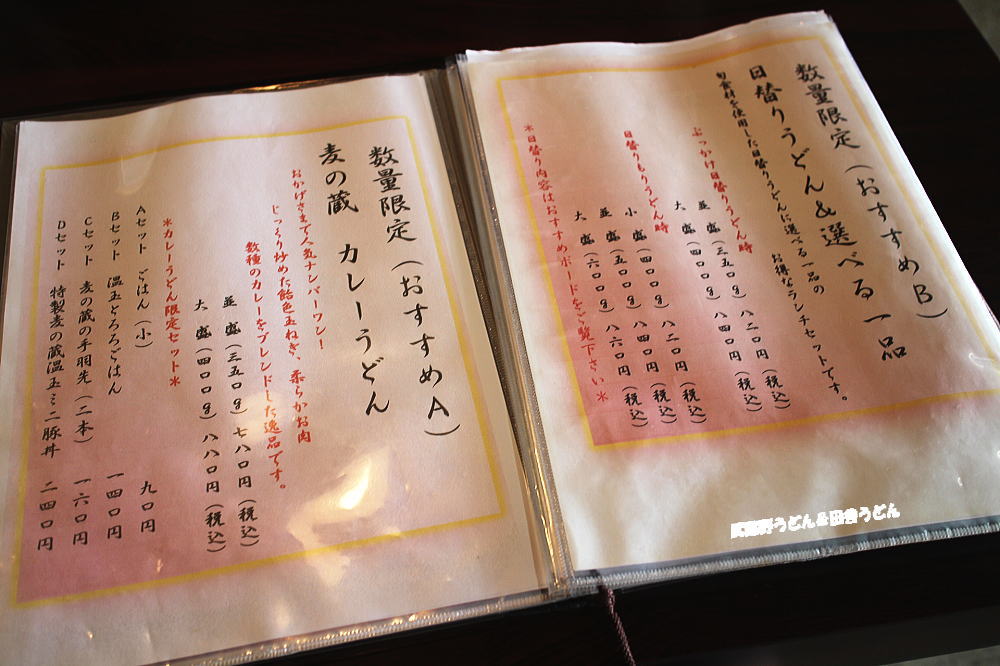 数量限定(おすすめB)
日替りうどん&選べる一品
旬食材を使用した日替りうどんに選べる一品の
お得なランチセットです。
ぶっかけ日替りうどん時
並 盛(三五〇g)八二〇円(税込)
大 盛(五〇〇g)八四〇円(税込)
日替りもりうどん時
小 盛(四〇〇g)八二〇円(税込)
並 盛(五〇〇g)八四〇円(税込)
大 盛(六〇〇g)八六〇円(税込)
*日替り内容はおすすめボードをご覧下さい*
数量限定(おすすめA)
麦の蔵 カレーうどん
おかげさまで人気ナンバーワン!
じっくり炒めた飴色玉ねぎ、柔らかお肉
数種のカレーをブレンドした逸品です。
並 盛(三五〇g)七八〇円(税込)
大 盛(四〇〇g)八八〇円(税込)
*カレーうどん限定セット*
Aセット ごはん(小) 九〇円
Bセット 温玉とろろごはん 一四〇円
Cセット 麦の蔵の手羽先(二本) 一六〇円
Dセット 特製麦の蔵温玉ミニ豚丼 二四〇円
武蔵野うどん&田舎うどん